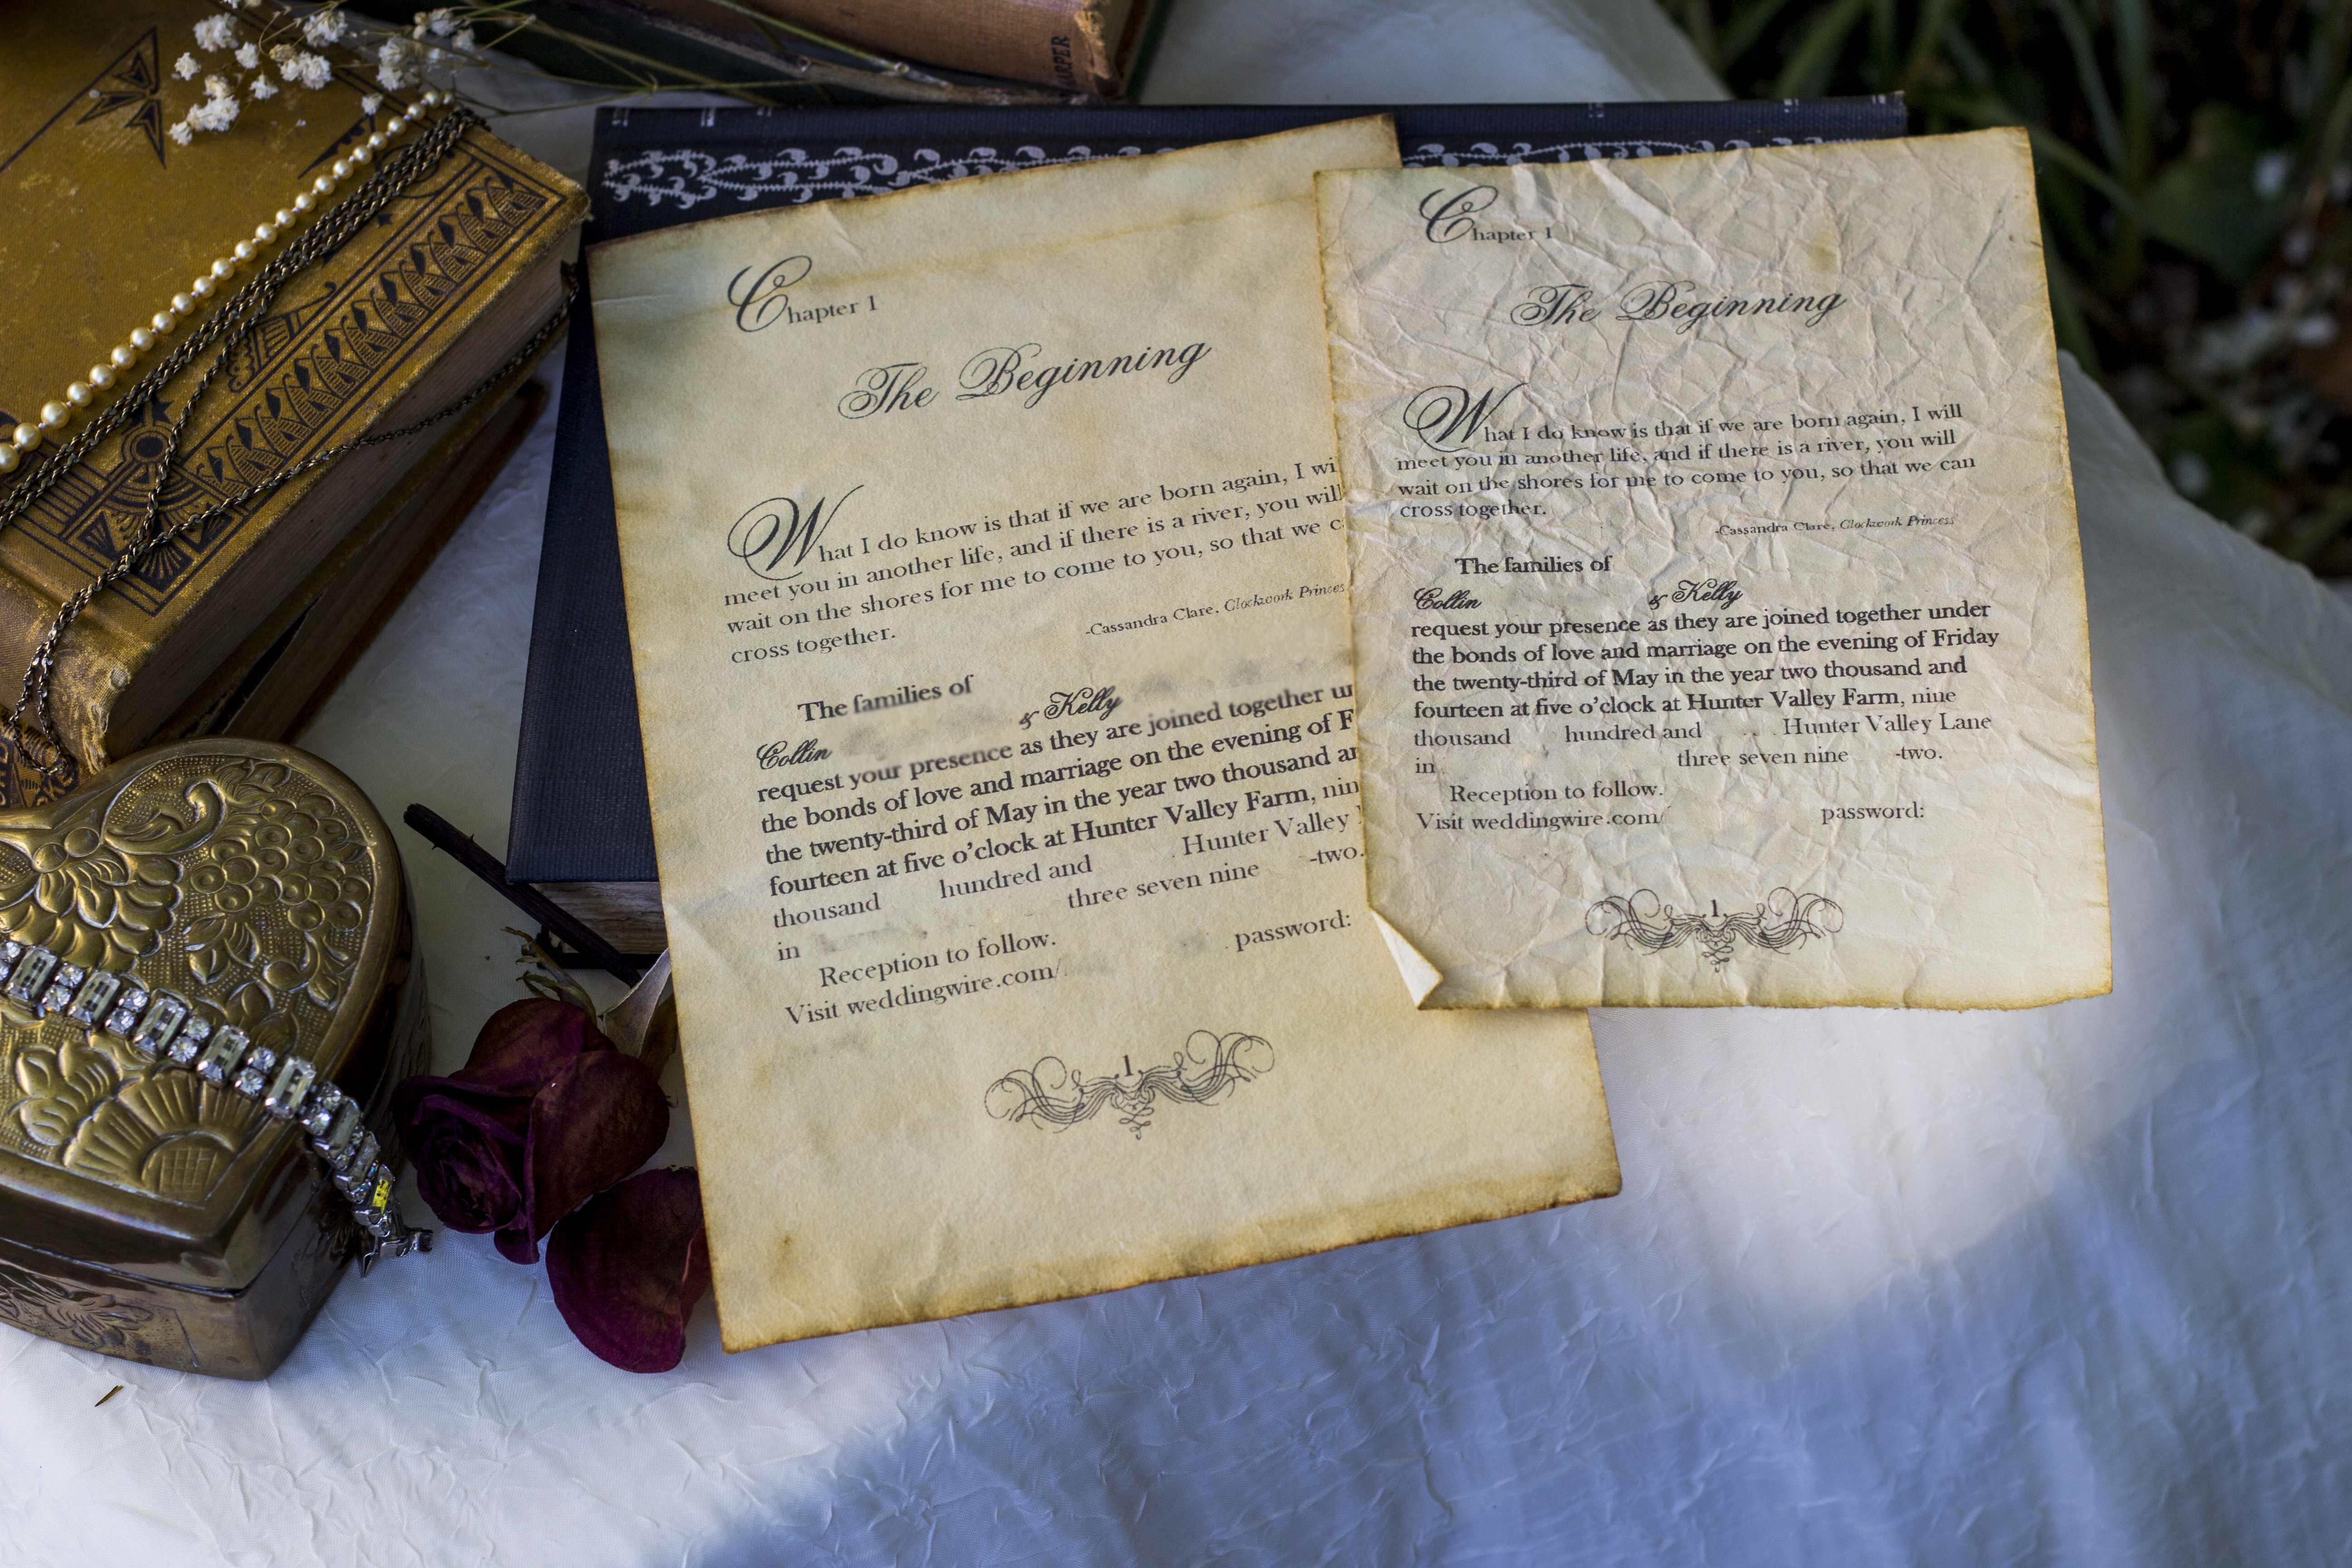 HARPER
Chapter 1
The Beginning
What I do know is that if we are born again, I wi
meet you in another life, and if there is a river, you will
wait on the shores for me to come to you, so that we c
cross together.
-Cassandra Clare, Clockwork Princes
The families of
Collin & Kelly
request your presence as they are joined together un
the bonds of love and marriage on the evening of F
the twenty-third of May in the year two thousand an
fourteen at five o'clock at Hunter Valley Farm, nin
thousand hundred and Hunter Valley
in three seven nine -two.
Reception to follow.
Visit weddingwire.com/ password:
1
Chapter 1
The Beginning
What I do know is that if we are born again, I will
meet you in another life, and if there is a river, you will
wait on the shores for me to come to you, so that we can
cross together.
-Cassandra Clare, Clockwork Princess
The families of
Collin & Kelly
request your presence as they are joined together under
the bonds of love and marriage on the evening of Friday
the twenty-third of May in the year two thousand and
fourteen at five o'clock at Hunter Valley Farm, nine
thousand hundred and Hunter Valley Lane
in three seven nine -two.
Reception to follow.
Visit weddingwire.com/ password:
1